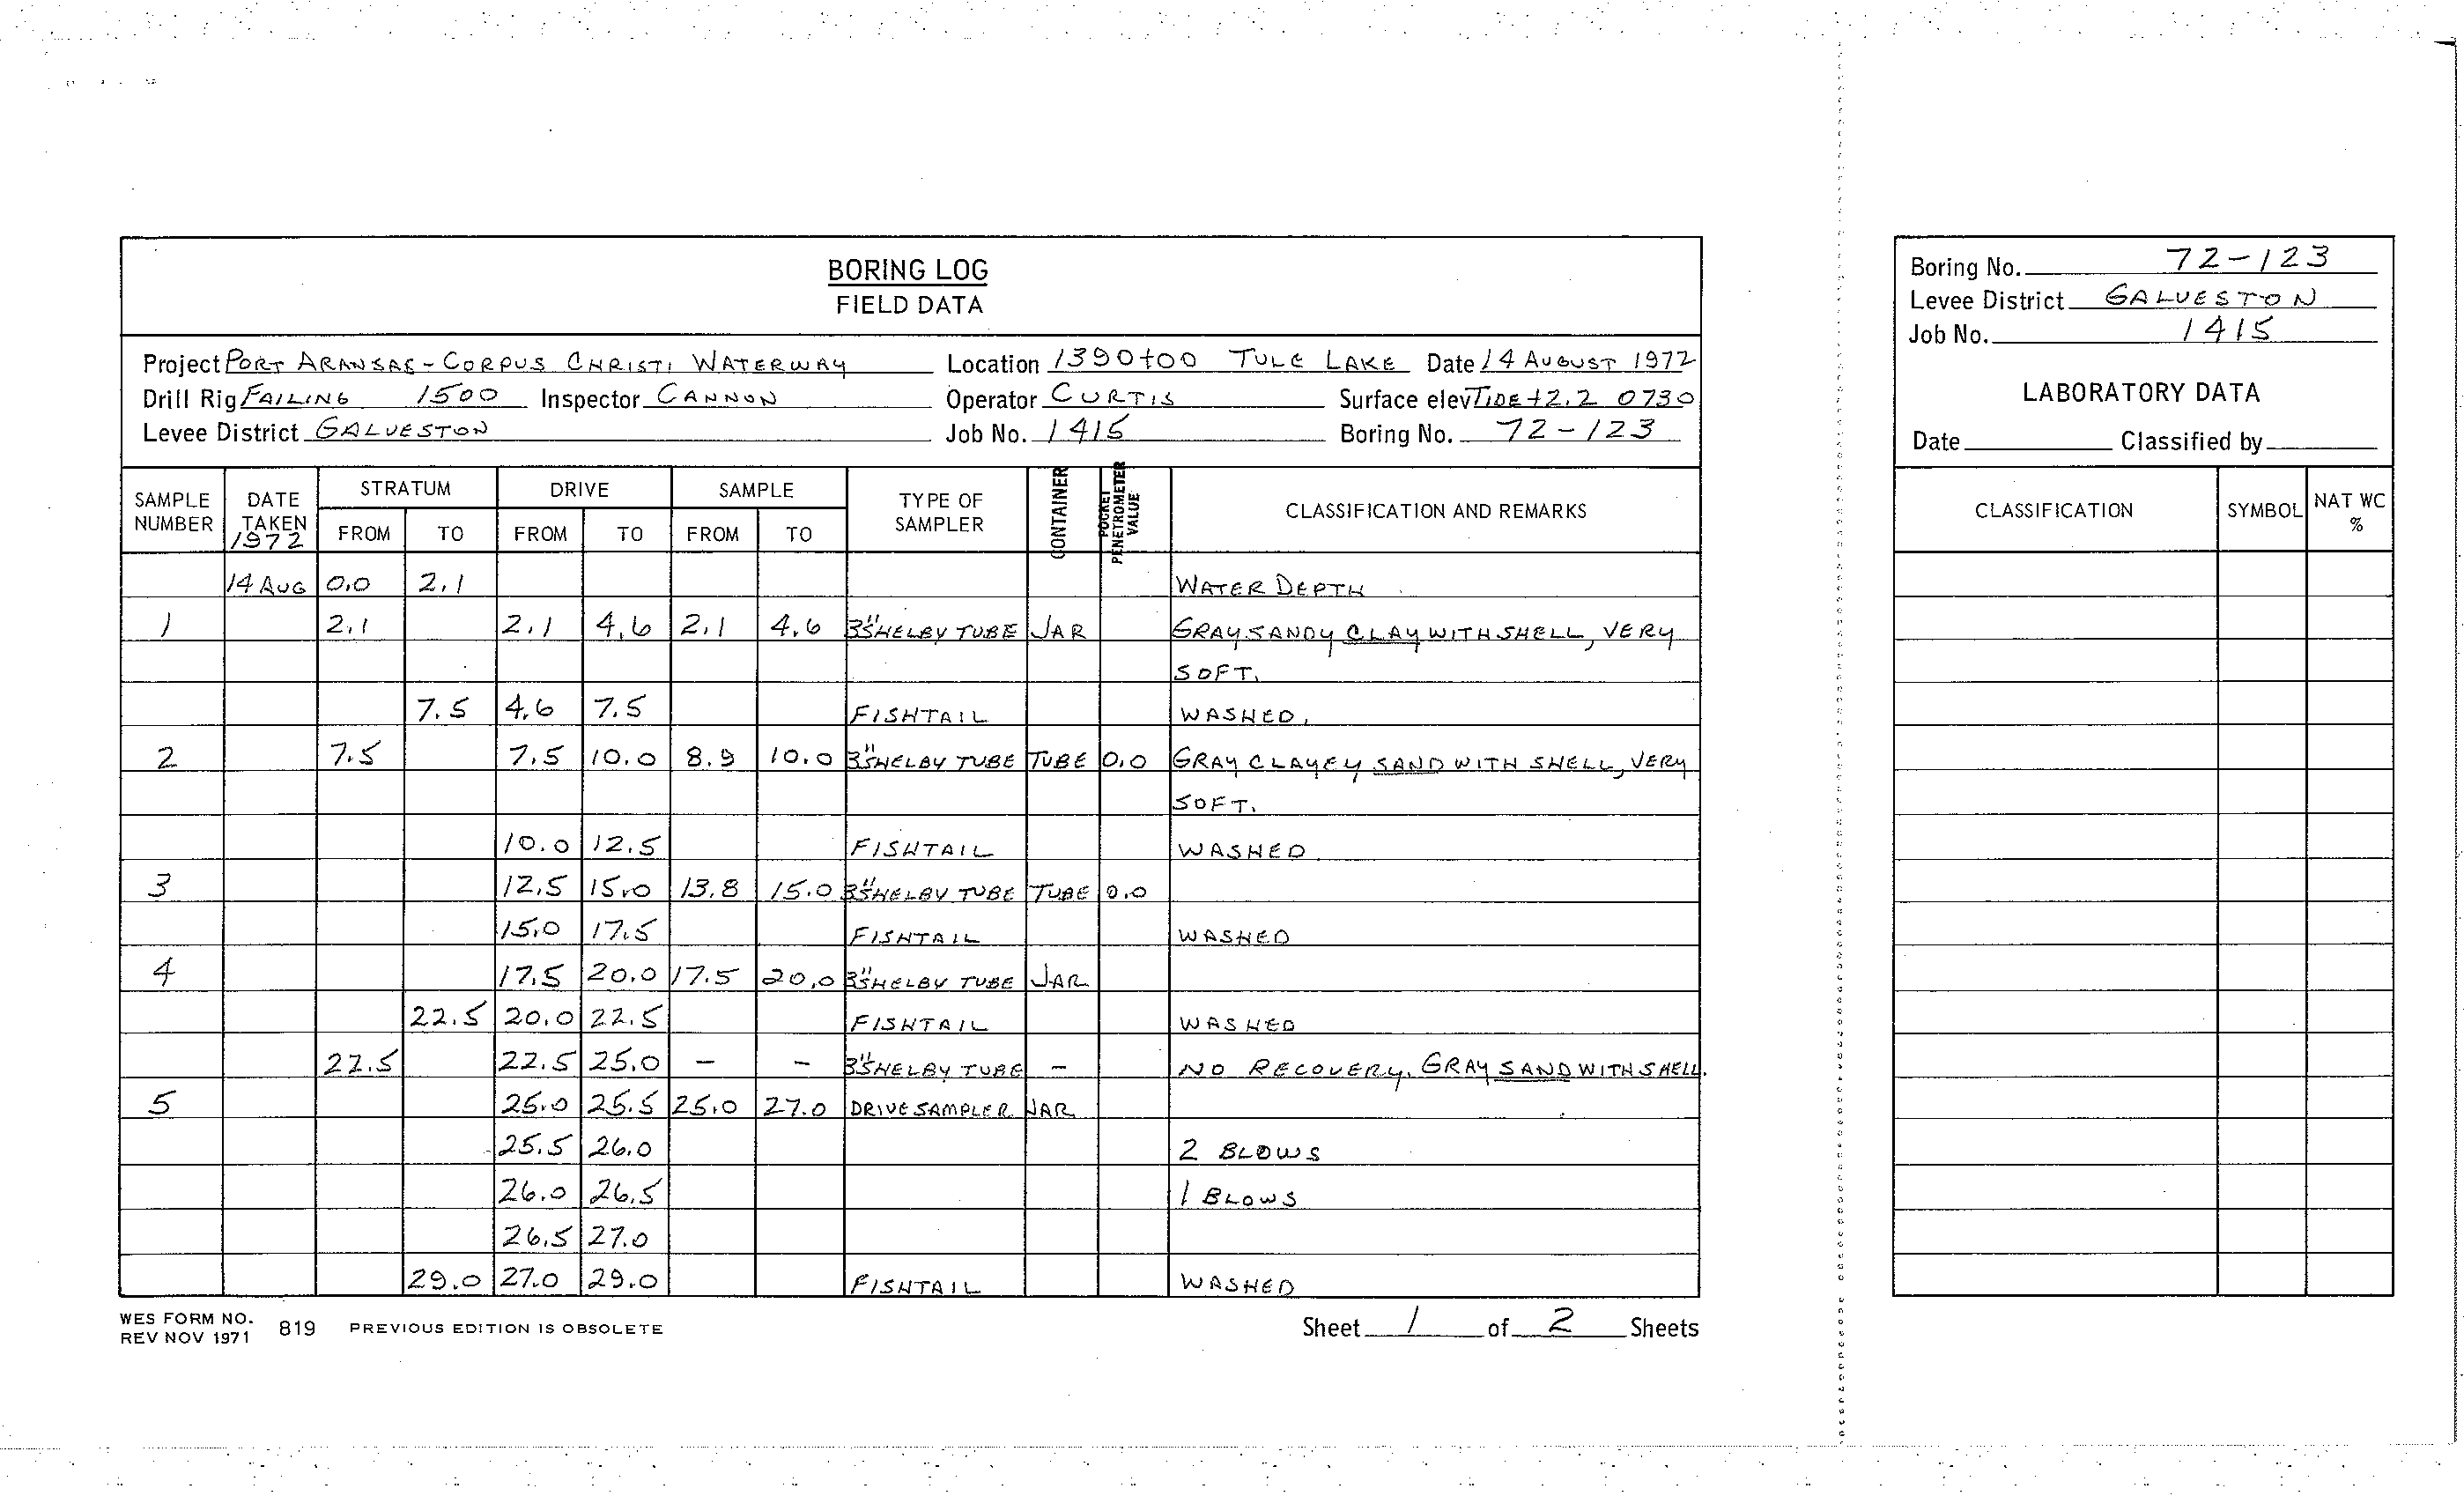 BORING LOG
FIELD DATA
Project PORT ARANSAS - CORPUS CHRISTI WATERWAY Location 1390+00 TULE LAKE Date 14 AUGUST 1972
Drill Rig FAILING 1500 Inspector CANNON Operator CURTIS Surface elev TIDE +2.2 0730
Levee District GALVESTON Job No. 1415 Boring No. 72-123
SAMPLE NUMBER DATE TAKEN 1972 STRATUM FROM TO DRIVE FROM TO SAMPLE FROM TO TYPE OF SAMPLER CONTAINER POCKET PENETROMETER VALUE CLASSIFICATION AND REMARKS
14 AUG 0.0 2.1 WATER DEPTH
1 2.1 2.1 4.6 2.1 4.6 3" SHELBY TUBE JAR GRAY SANDY CLAY WITH SHELL, VERY
SOFT.
7.5 4.6 7.5 FISHTAIL WASHED.
2 7.5 7.5 10.0 8.9 10.0 3" SHELBY TUBE TUBE 0.0 GRAY CLAYEY SAND WITH SHELL, VERY
SOFT.
10.0 12.5 FISHTAIL WASHED
3 12.5 15.0 13.8 15.0 3" SHELBY TUBE TUBE 0.0
15.0 17.5 FISHTAIL WASHED
4 17.5 20.0 17.5 20.0 3" SHELBY TUBE JAR
22.5 20.0 22.5 FISHTAIL WASHED
22.5 22.5 25.0 - - 3" SHELBY TUBE - NO RECOVERY. GRAY SAND WITH SHELL.
5 25.0 25.5 25.0 27.0 DRIVE SAMPLER JAR
25.5 26.0 2 BLOWS
26.0 26.5 1 BLOWS
26.5 27.0
29.0 27.0 29.0 FISHTAIL WASHED
WES FORM NO. 819 PREVIOUS EDITION IS OBSOLETE
REV NOV 1971
Sheet 1 of 2 Sheets
Boring No. 72-123
Levee District GALVESTON
Job No. 1415
LABORATORY DATA
Date Classified by
CLASSIFICATION SYMBOL NAT WC %